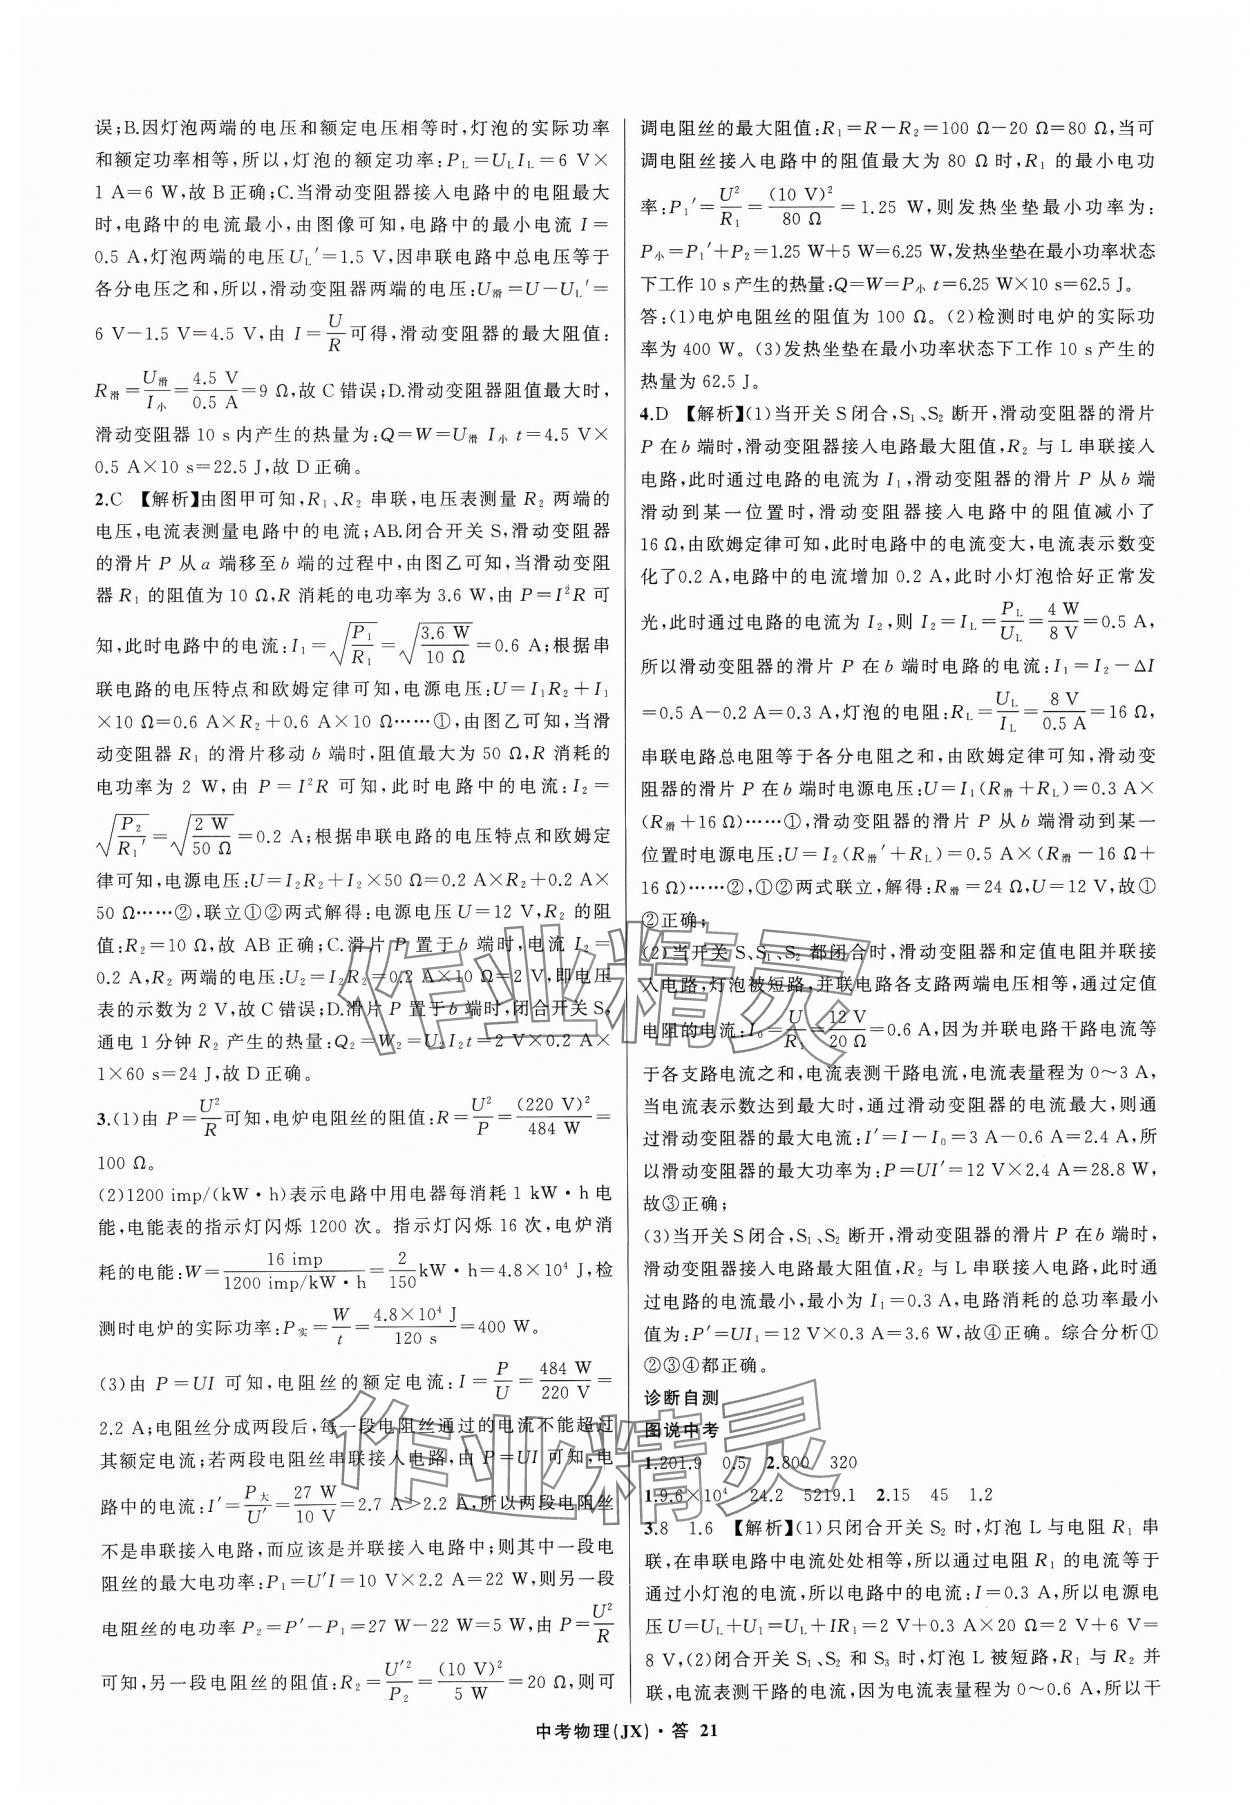 误;B.因灯泡两端的电压和额定电压相等时,灯泡的实际功率
和额定功率相等,所以,灯泡的额定功率:P_L=U_L I_L=6 V×
1 A=6 W,故 B正确;C.当滑动变阻器接入电路中的电阻最大
时,电路中的电流最小,由图像可知,电路中的最小电流 I=
0.5 A,灯泡两端的电压U_L′=1.5 V,因串联电路中总电压等于
各分电压之和,所以,滑动变阻器两端的电压:U滑=U-U_L′=
6 V-1.5 V=4.5 V,由 I=U/R 可得,滑动变阻器的最大阻值:
R滑=U滑/I小=4.5 V/0.5 A=9 Ω,故 C 错误;D.滑动变阻器阻值最大时,
滑动变阻器 10 s内产生的热量为:Q=W=U滑 I小 t=4.5 V×
0.5 A×10 s=22.5 J,故 D 正确。
2.C 【解析】由图甲可知,R₁、R₂ 串联,电压表测量 R₂ 两端的
电压,电流表测量电路中的电流;AB.闭合开关 S,滑动变阻器
的滑片 P 从a 端移至b 端的过程中,由图乙可知,当滑动变阻
器 R₁ 的阻值为 10 Ω,R 消耗的电功率为 3.6 W,由 P=I²R 可
知,此时电路中的电流:I₁=√(P₁/R₁)=√(3.6 W/10 Ω)=0.6 A;根据串
联电路的电压特点和欧姆定律可知,电源电压:U=I₁R₂+I₁
×10 Ω=0.6 A×R₂+0.6 A×10 Ω……①,由图乙可知,当滑
动变阻器 R₁ 的滑片移动 b 端时,阻值最大为 50 Ω,R 消耗的
电功率为 2 W,由 P=I²R 可知,此时电路中的电流:I₂=
√(P₂/R₁′)=√(2 W/50 Ω)=0.2 A;根据串联电路的电压特点和欧姆定
律可知,电源电压:U=I₂R₂+I₂×50 Ω=0.2 A×R₂+0.2 A×
50 Ω……②,联立①②两式解得:电源电压U=12 V,R₂ 的阻
值:R₂=10 Ω,故 AB 正确;C.滑片 P 置于b 端时,电流 I₂=
0.2 A,R₂ 两端的电压:U₂=I₂R₂=0.2 A×10 Ω=2 V,即电压
表的示数为 2 V,故 C 错误;D.滑片 P 置于b 端时,闭合开关 S,
通电 1 分钟 R₂ 产生的热量:Q₂=W₂=U₂I₂t=2 V×0.2 A×
1×60 s=24 J,故 D 正确。
3.(1)由 P=U²/R可知,电炉电阻丝的阻值:R=U²/P=(220 V)²/484 W=
100 Ω。
(2)1200 imp/(kW·h)表示电路中用电器每消耗 1 kW·h电
能,电能表的指示灯闪烁 1200 次。指示灯闪烁 16 次,电炉消
耗的电能:W=16 imp/1200 imp/kW·h=2/150 kW·h=4.8×10⁴ J,检
测时电炉的实际功率:P实=W/t=4.8×10⁴ J/120 s=400 W。
(3)由 P=UI 可知,电阻丝的额定电流:I=P/U=484 W/220 V=
2.2 A;电阻丝分成两段后,每一段电阻丝通过的电流不能超过
其额定电流;若两段电阻丝串联接入电路,由 P=UI 可知,电
路中的电流:I′=P大/U′=27 W/10 V=2.7 A>2.2 A,所以两段电阻丝
不是串联接入电路,而应该是并联接入电路中;则其中一段电
阻丝的最大电功率:P₁=U′I=10 V×2.2 A=22 W,则另一段
电阻丝的电功率 P₂=P′-P₁=27 W-22 W=5 W,由 P=U²/R
可知,另一段电阻丝的阻值:R₂=U′²/P₂=(10 V)²/5 W=20 Ω,则可
调电阻丝的最大阻值:R₁=R-R₂=100 Ω-20 Ω=80 Ω,当可
调电阻丝接入电路中的阻值最大为 80 Ω 时,R₁ 的最小电功
率:P₁′=U²/R₁=(10 V)²/80 Ω=1.25 W,则发热坐垫最小功率为:
P小=P₁′+P₂=1.25 W+5 W=6.25 W,发热坐垫在最小功率状态
下工作 10 s产生的热量:Q=W=P小 t=6.25 W×10 s=62.5 J。
答:(1)电炉电阻丝的阻值为 100 Ω。(2)检测时电炉的实际功
率为 400 W。(3)发热坐垫在最小功率状态下工作 10 s产生的
热量为 62.5 J。
4.D 【解析】(1)当开关 S闭合,S₁、S₂ 断开,滑动变阻器的滑片
P 在b 端时,滑动变阻器接入电路最大阻值,R₂ 与 L串联接入
电路,此时通过电路的电流为 I₁,滑动变阻器的滑片 P 从b 端
滑动到某一位置时,滑动变阻器接入电路中的阻值减小了
16 Ω,由欧姆定律可知,此时电路中的电流变大,电流表示数变
化了0.2 A,电路中的电流增加 0.2 A,此时小灯泡恰好正常发
光,此时通过电路的电流为 I₂,则 I₂=I_L=P_L/U_L=4 W/8 V=0.5 A,
所以滑动变阻器的滑片 P 在b 端时电路的电流:I₁=I₂-ΔI
=0.5 A-0.2 A=0.3 A,灯泡的电阻:R_L=U_L/I_L=8 V/0.5 A=16 Ω,
串联电路总电阻等于各分电阻之和,由欧姆定律可知,滑动变
阻器的滑片 P 在b 端时电源电压:U=I₁(R滑+R_L)=0.3 A×
(R滑+16 Ω)……①,滑动变阻器的滑片 P 从b 端滑动到某一
位置时电源电压:U=I₂(R滑′+R_L)=0.5 A×(R滑-16 Ω+
16 Ω)……②,①②两式联立,解得:R滑=24 Ω,U=12 V,故①
②正确;
(2)当开关 S、S₁、S₂ 都闭合时,滑动变阻器和定值电阻并联接
入电路,灯泡被短路,并联电路各支路两端电压相等,通过定值
电阻的电流:I₀=U/R₁=12 V/20 Ω=0.6 A,因为并联电路干路电流等
于各支路电流之和,电流表测干路电流,电流表量程为 0~3 A,
当电流表示数达到最大时,通过滑动变阻器的电流最大,则通
过滑动变阻器的最大电流:I′=I-I₀=3 A-0.6 A=2.4 A,所
以滑动变阻器的最大功率为:P=UI′=12 V×2.4 A=28.8 W,
故③正确;
(3)当开关 S闭合,S₁、S₂ 断开,滑动变阻器的滑片 P 在b 端时,
滑动变阻器接入电路最大阻值,R₂ 与 L 串联接入电路,此时通
过电路的电流最小,最小为 I₁=0.3 A,电路消耗的总功率最小
值为:P′=UI₁=12 V×0.3 A=3.6 W,故④正确。综合分析①
②③④都正确。
诊断自测
图说中考
1.201.9 0.5 2.800 320
1.9.6×10⁴ 24.2 5219.1 2.15 45 1.2
3.8 1.6 【解析】(1)只闭合开关 S₂ 时,灯泡 L与电阻 R₁ 串
联,在串联电路中电流处处相等,所以通过电阻 R₁ 的电流等于
通过小灯泡的电流,所以电路中的电流:I=0.3 A,所以电源电
压U=U_L+U₁=U_L+IR₁=2 V+0.3 A×20 Ω=2 V+6 V=
8 V,(2)闭合开关 S₁、S₂ 和 S₃ 时,灯泡 L被短路,R₁ 与 R₂ 并
联,电流表测干路的电流,因为电流表量程为 0~0.6 A,所以干
中考物理(JX)·答 21
作业精灵
作业精灵